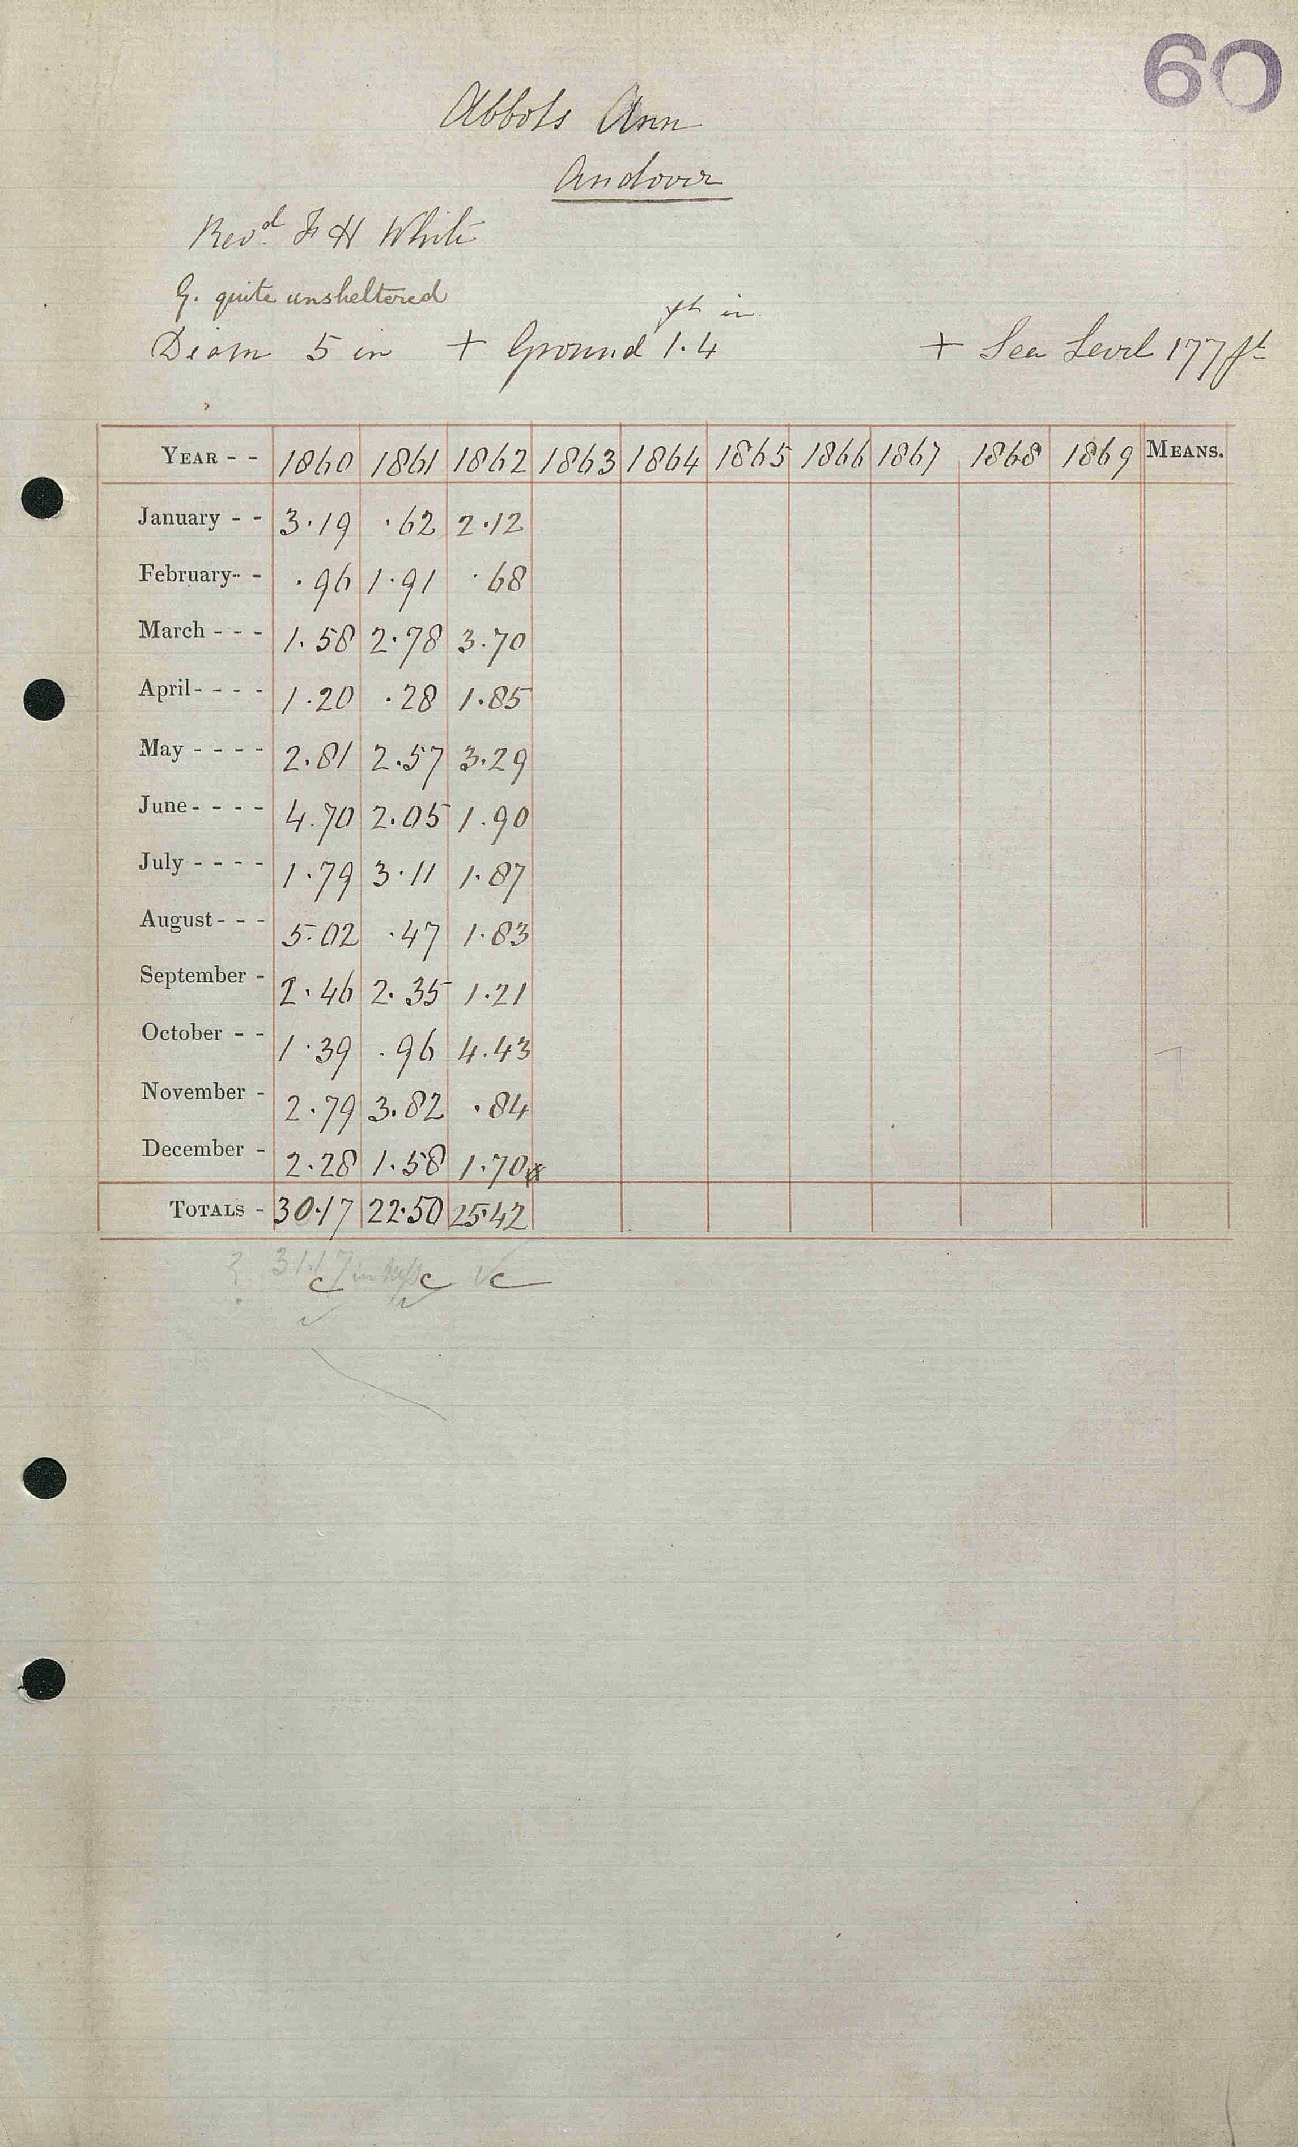 60
Abbots Ann
Andover
Revd. F H White
G. quite unsheltered
ft in
Diam 5 in + Ground 1.4 + Sea Level 177 ft
YEAR - - 1860 1861 1862 1863 1864 1865 1866 1867 1868 1869 MEANS.
January - - 3.19 .62 2.12
February - - .96 1.91 .68
March - - - 1.58 2.78 3.70
April - - - - 1.20 .28 1.85
May - - - - 2.81 2.57 3.29
June - - - - 4.70 2.05 1.90
July - - - - 1.79 3.11 1.87
August - - - 5.02 .47 1.83
September - 2.46 2.35 1.21
October - - 1.39 .96 4.43
November - 2.79 3.82 .84
December - 2.28 1.58 1.70
TOTALS - 30.17 22.50 25.42
? 31.17
c c c